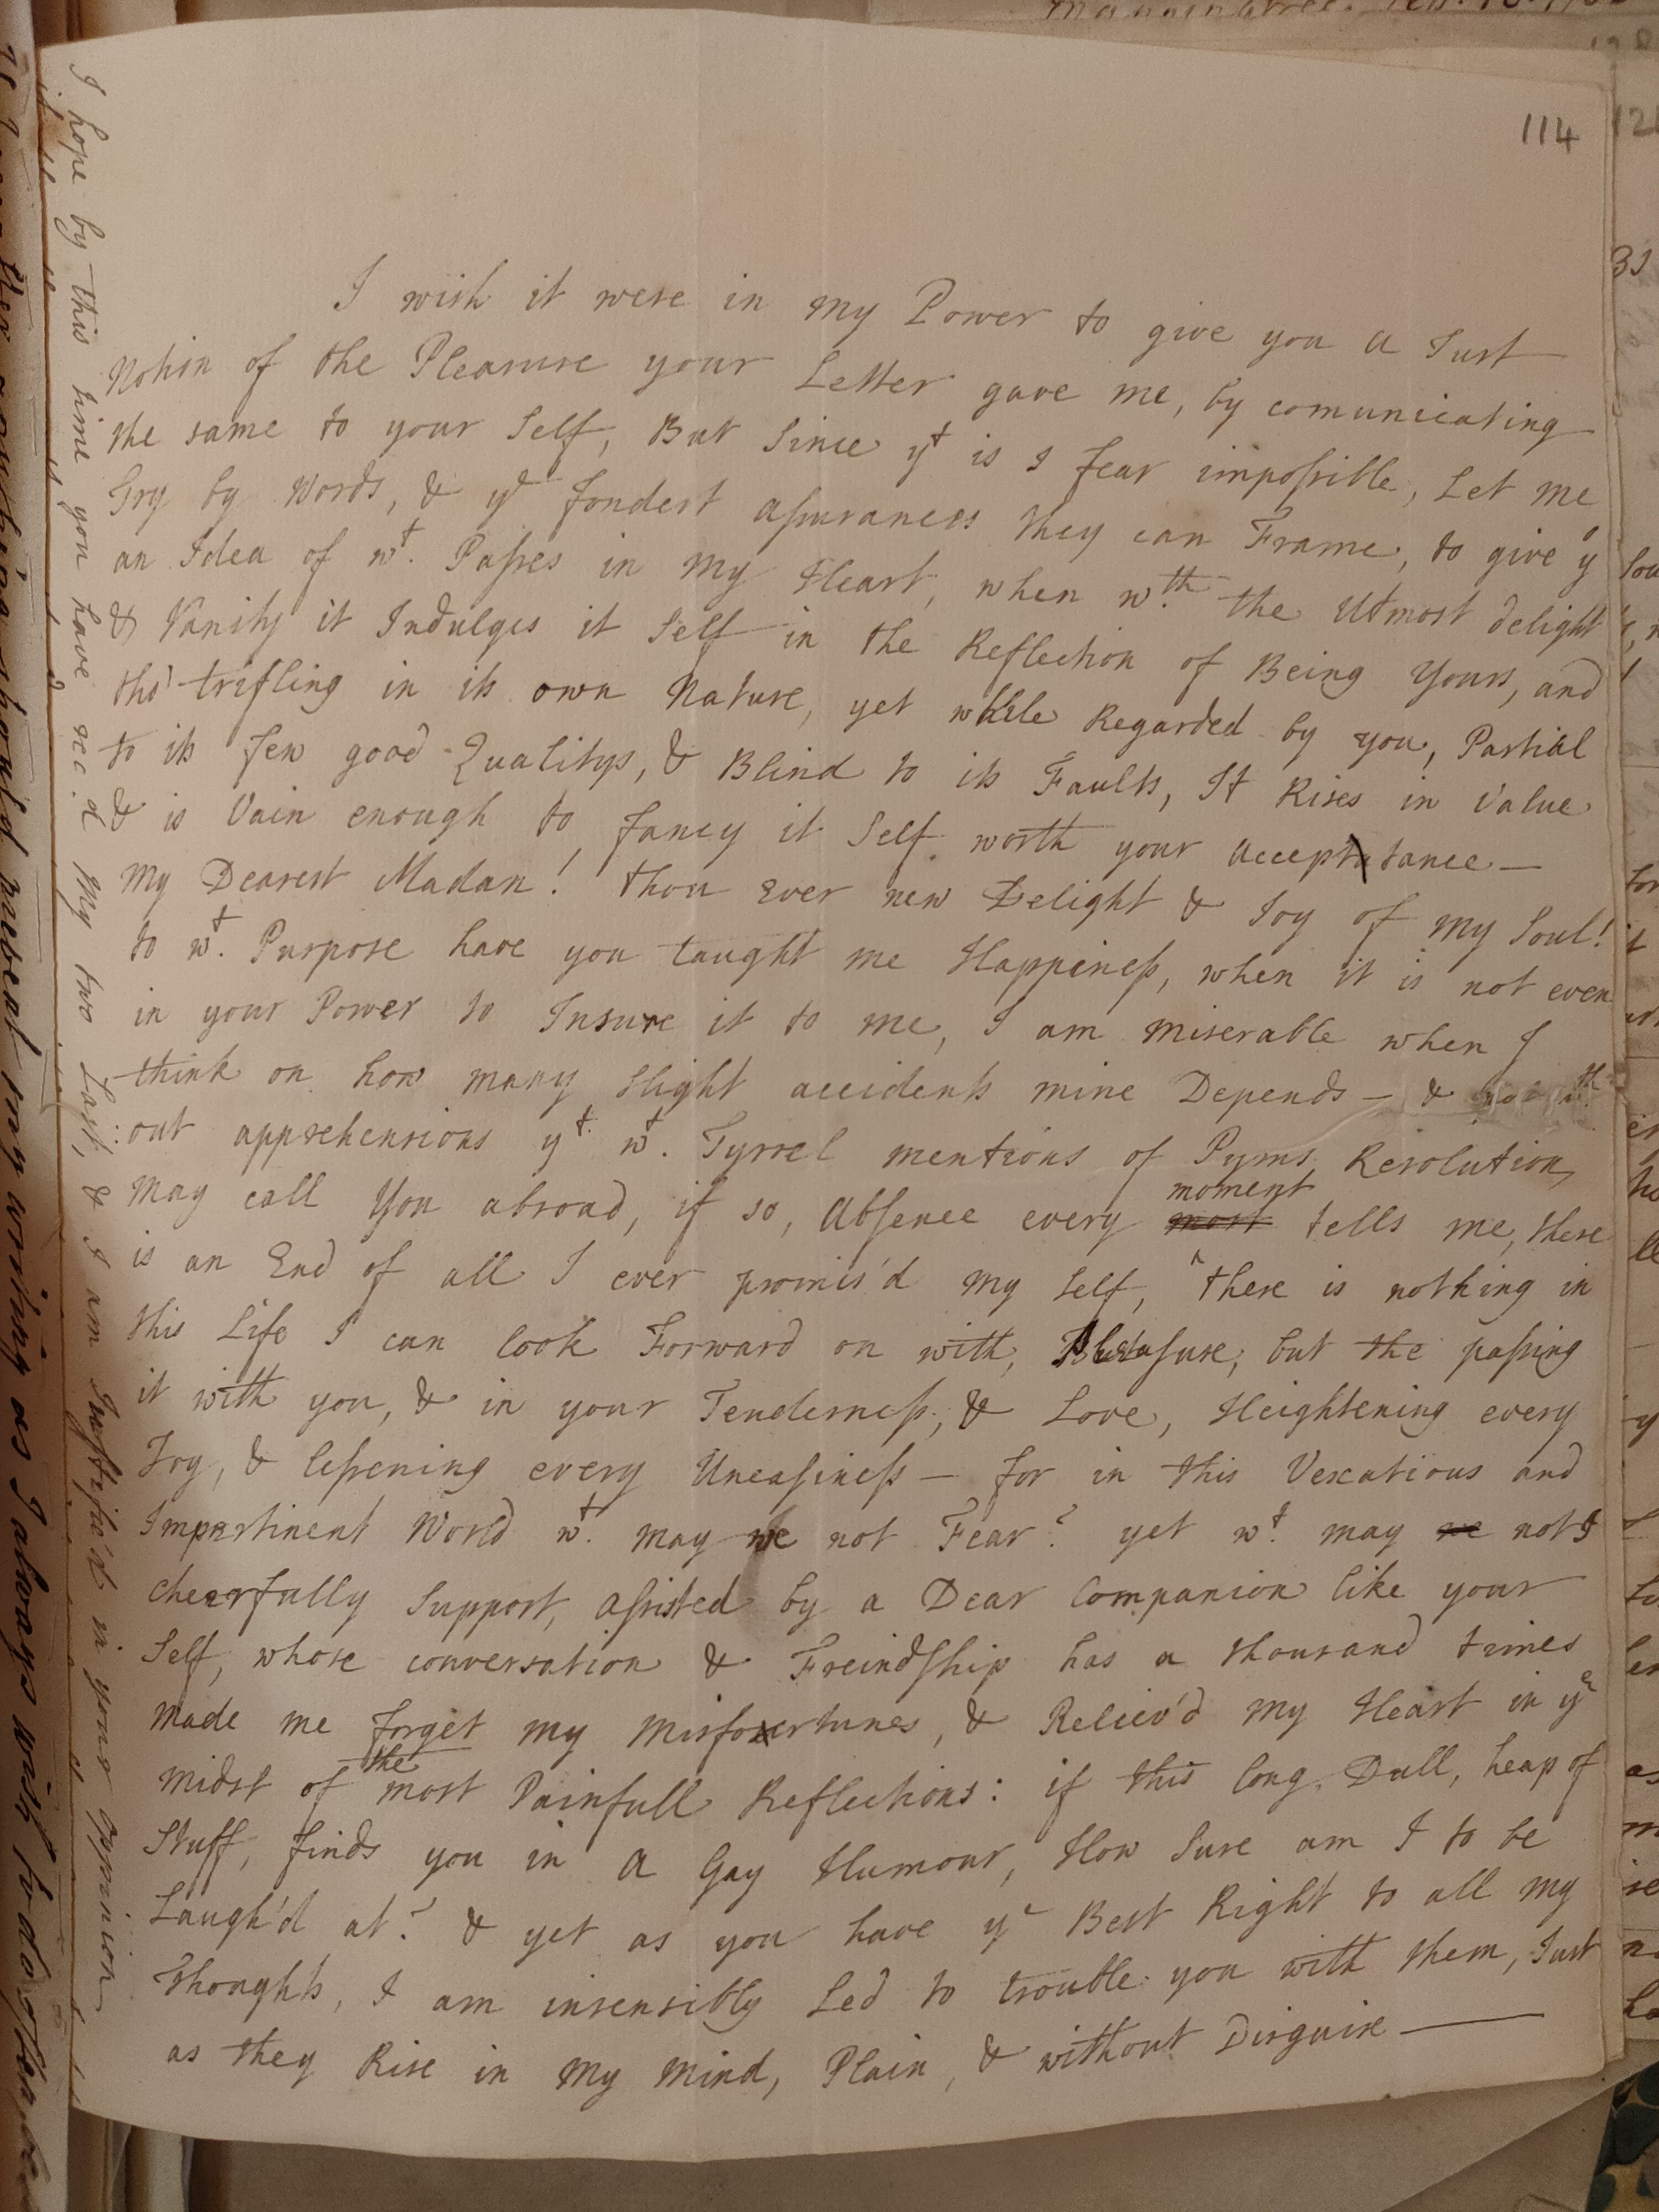 114
I wish it were in my Power to give you a Just
Notion of the Pleasure your Letter gave me, by communicating
the same to your Self, But Since yt is I fear impossible, Let me
Try by Words, & ye fondest assurances they can Frame, to give y
an Idea of wt. Passes in My Heart, when wth. the Utmost delight
& Vanity it Indulges it Self in the Reflection of Being Yours, and
tho' trifling in its own Nature, yet while Regarded by you, Partial
to its few good Qualitys, & Blind to its Faults, It Rises in Value
& is Vain enough to fancy it Self worth your acceptance —
My Dearest Madan! thou Ever new Delight & Joy of my Soul!
to wt. Purpose have you taught me Happiness, when it is not even
in your Power to Insure it to me, I am miserable when I
think on how many Slight accidents mine Depends — &
out apprehensions yt. wt. Tyrrel mentions of Pyms Resolution,
May call You abroad, if so, Absence every most moment tells me, there
is an End of all I ever promis'd my Self, there is nothing in
this Life I can look Forward on with Pleasure, but the passing
it with you, & in your Tenderness, & Love, Heightening every
Joy, & lessening every Uneasiness — for in this Vexatious and
Impertinent World wt. may we not Fear? yet wt. may we not
Cheerfully Support, assisted by a Dear Companion like your
Self, whose conversation & Freindship has a thousand times
Made me Forget my Misfortunes, & Reliev'd My Heart in ye
Midst of the most Painfull Reflections: if this long, Dull, heap of
Stuff, finds you in a Gay Humour, How Sure am I to be
Laugh'd at? & yet as you have ye Best Right to all my
Thoughts, I am insensibly Led to trouble you with them, Just
as they Rise in My Mind, Plain, & without Disguise —
I hope by this time you have recd. My two Last, & I am Justifie'd in your oppinion
should prevent my writing as I always wish to do often